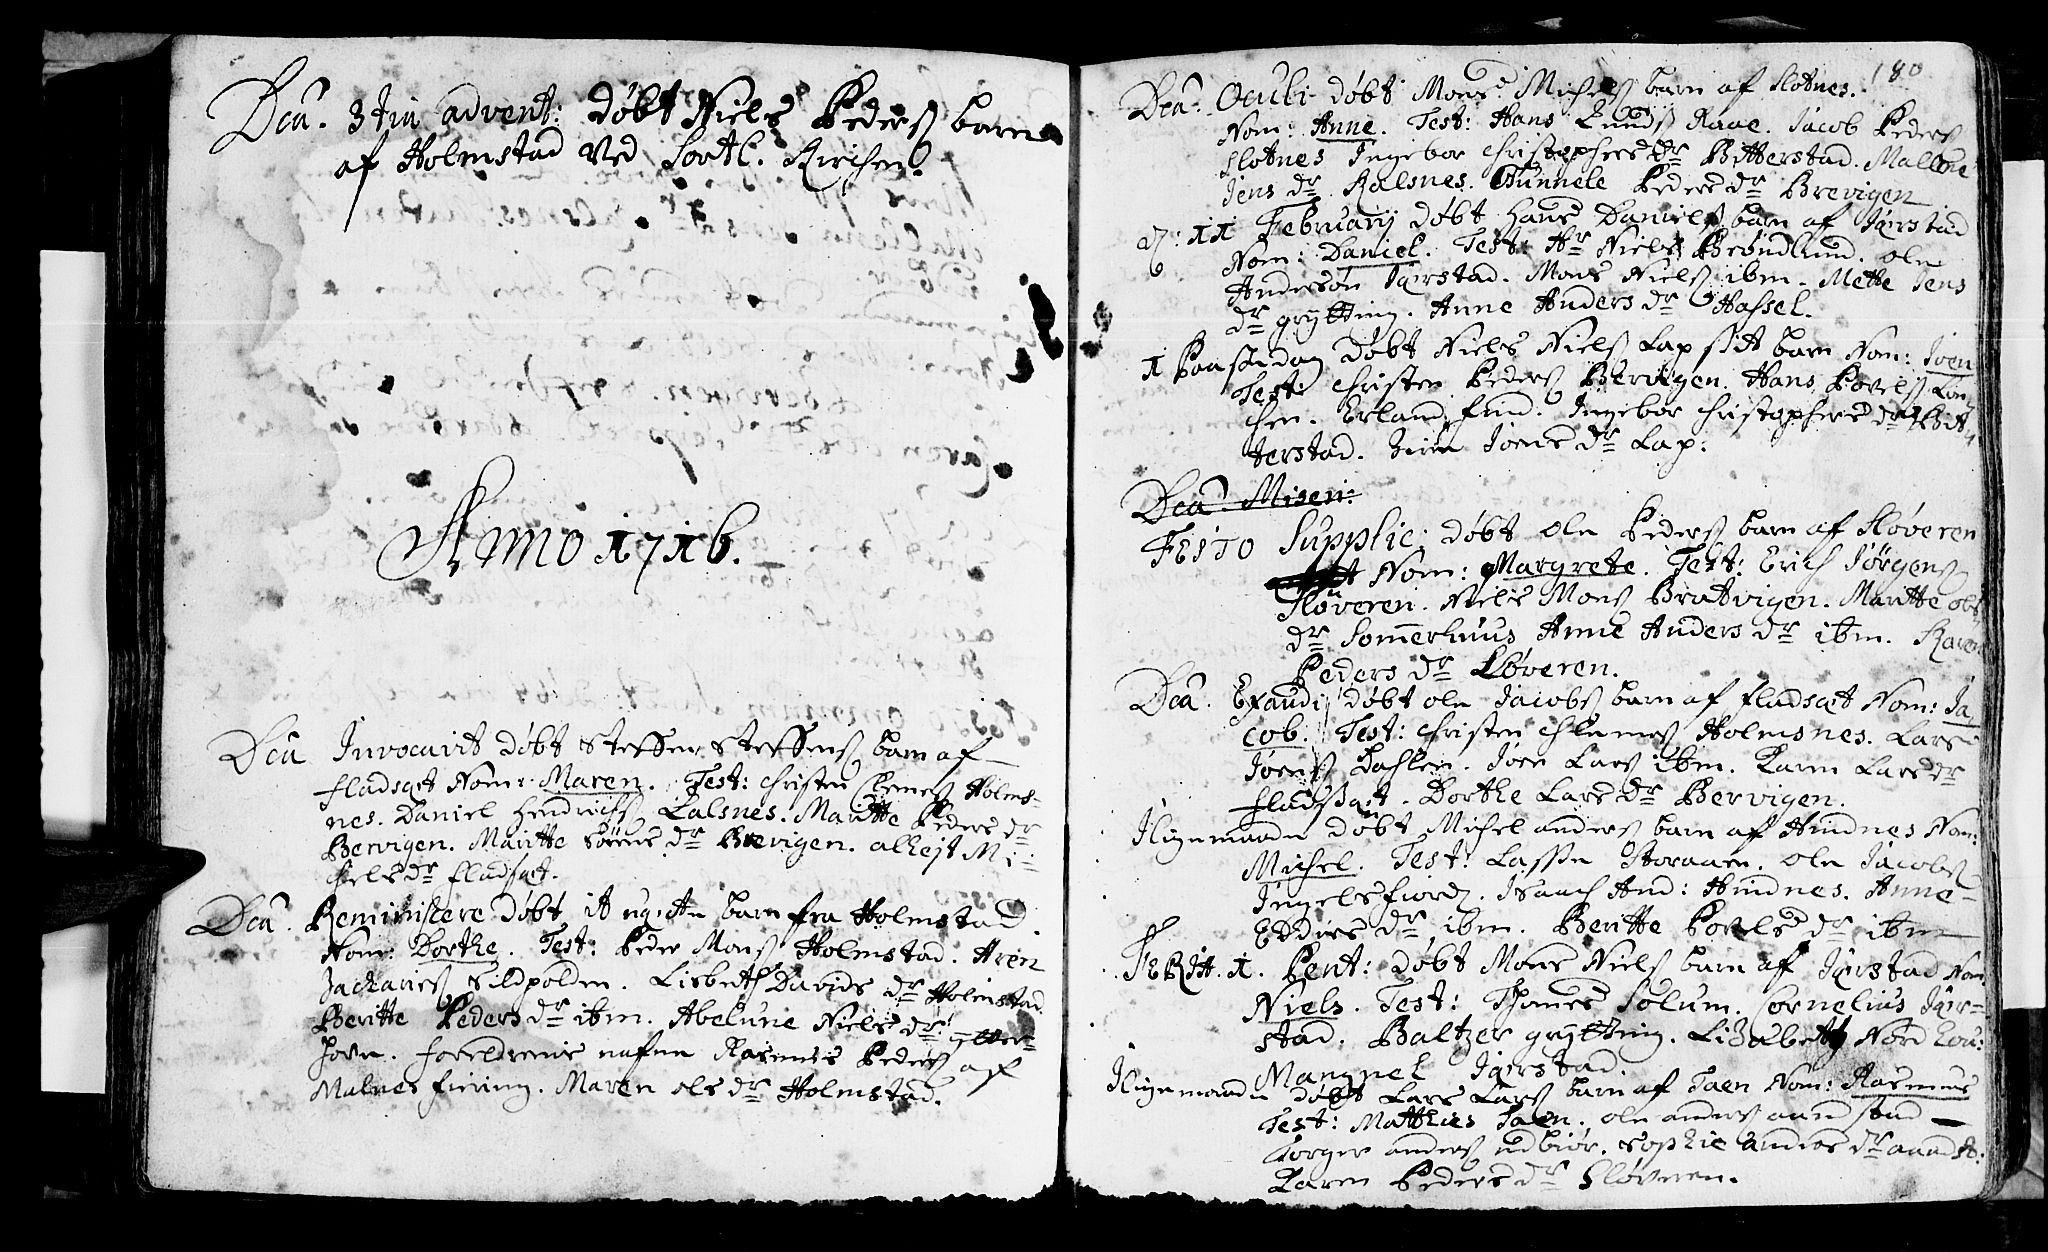 Dca. 3tia advent: døbt Niels Peders barn
af Holmstad ved Sortl. Kirchen.
Anno 1716.
Dca Invocavit døbt Steffen Steffens barn af
fladsæt Nom: Maren. Test: Christen Clemes Holms-
nes. Daniel Hendrichs Kalsnes. Maritte Peders dr
Bervigen. Maritte Sørens dr Brevigen. alhejt Mi-
chels dr fladsæt.
Dca. Reminiscere døbt it uæcte barn fra Holmstad.
Nom: Dorthe. Test: Peder Mons Holmstad. Aren
Zacharies Sildpolden. Lisbeth Davids dr Holmstad
Beritte Peders dr ibm. Abelune Niels dr
Forældrenis nafne Rasmus Peders af
Malnes fiering. Maren ols dr Holmstad.
180
Dca. Oculi døbt Mons Michels barn af Slotnes.
Nom: Anne. Test: Hans Knuds Raae. Jacob Peders
Slotnes Ingebor Christophers dr Bitterstad. Mallene
Jens dr Kalsnes. Gunnele Peders dr Brevigen
d. 11 February døbt Hans Daniels barn af Jørstad
Nom: Daniel. Test: Hr Niels Brøndlund. ole
Andersøn Jørstad. Mons Niels ibm. Mette Jens
dr grytting. Anne Anders dr Hassel.
1 Paaschedag døbt Niels Niels Lap sit barn Nom: Joen
Test: Christen Peders Bervigen. Hans Povels Lon-
chen. Erland find. Ingebor Christophers dr Bit-
terstad. Joens dr Lap.
Dca. Misen:
FESTO Supplic: døbt ole Peders barn af Sløveren
Nom: Margrete. Test: Erich Jørgens
Sløveren. Niels Mons Bratvigen. Maritte ols
dr Sommerhuus Anne Anders dr ibm. Karen
Peders dr Sløveren.
Dca. Exaudi døbt ole Jacobs barn af fladsæt Nom: Ja-
cob. Test: Christen Clemes Holmsnes. Lars
Joens Dahlen. Joen Lars ibm. Karen Lars dr
fladsæt. Dorthe Lars dr Bervigen.
Iligemaade døbt Michel anders barn af Hindnes Nom:
Michel. Test: Lasse Storaaen. ole Jacobs
Ingelsfiord. Isaach And: Hindnes. Anne
Eddies dr ibm. Beritte Povels dr ibm
FERIA. 1. Pent: døbt Mons Niels barn af Jørstad Nom.
Niels. Test: Thomes Solum. Cornelius Jør-
stad. Baltzer grytting. Lisabeth Nord
Mangnel Jørstad.
Iligemaade døbt Lars Lars barn af Taen Nom: Rasmus
Test: Matthies Taen. ole anders aandstad
Tørger anders udbiør. Sophie anders dr aandst:
Karen Peders dr Sløveren.